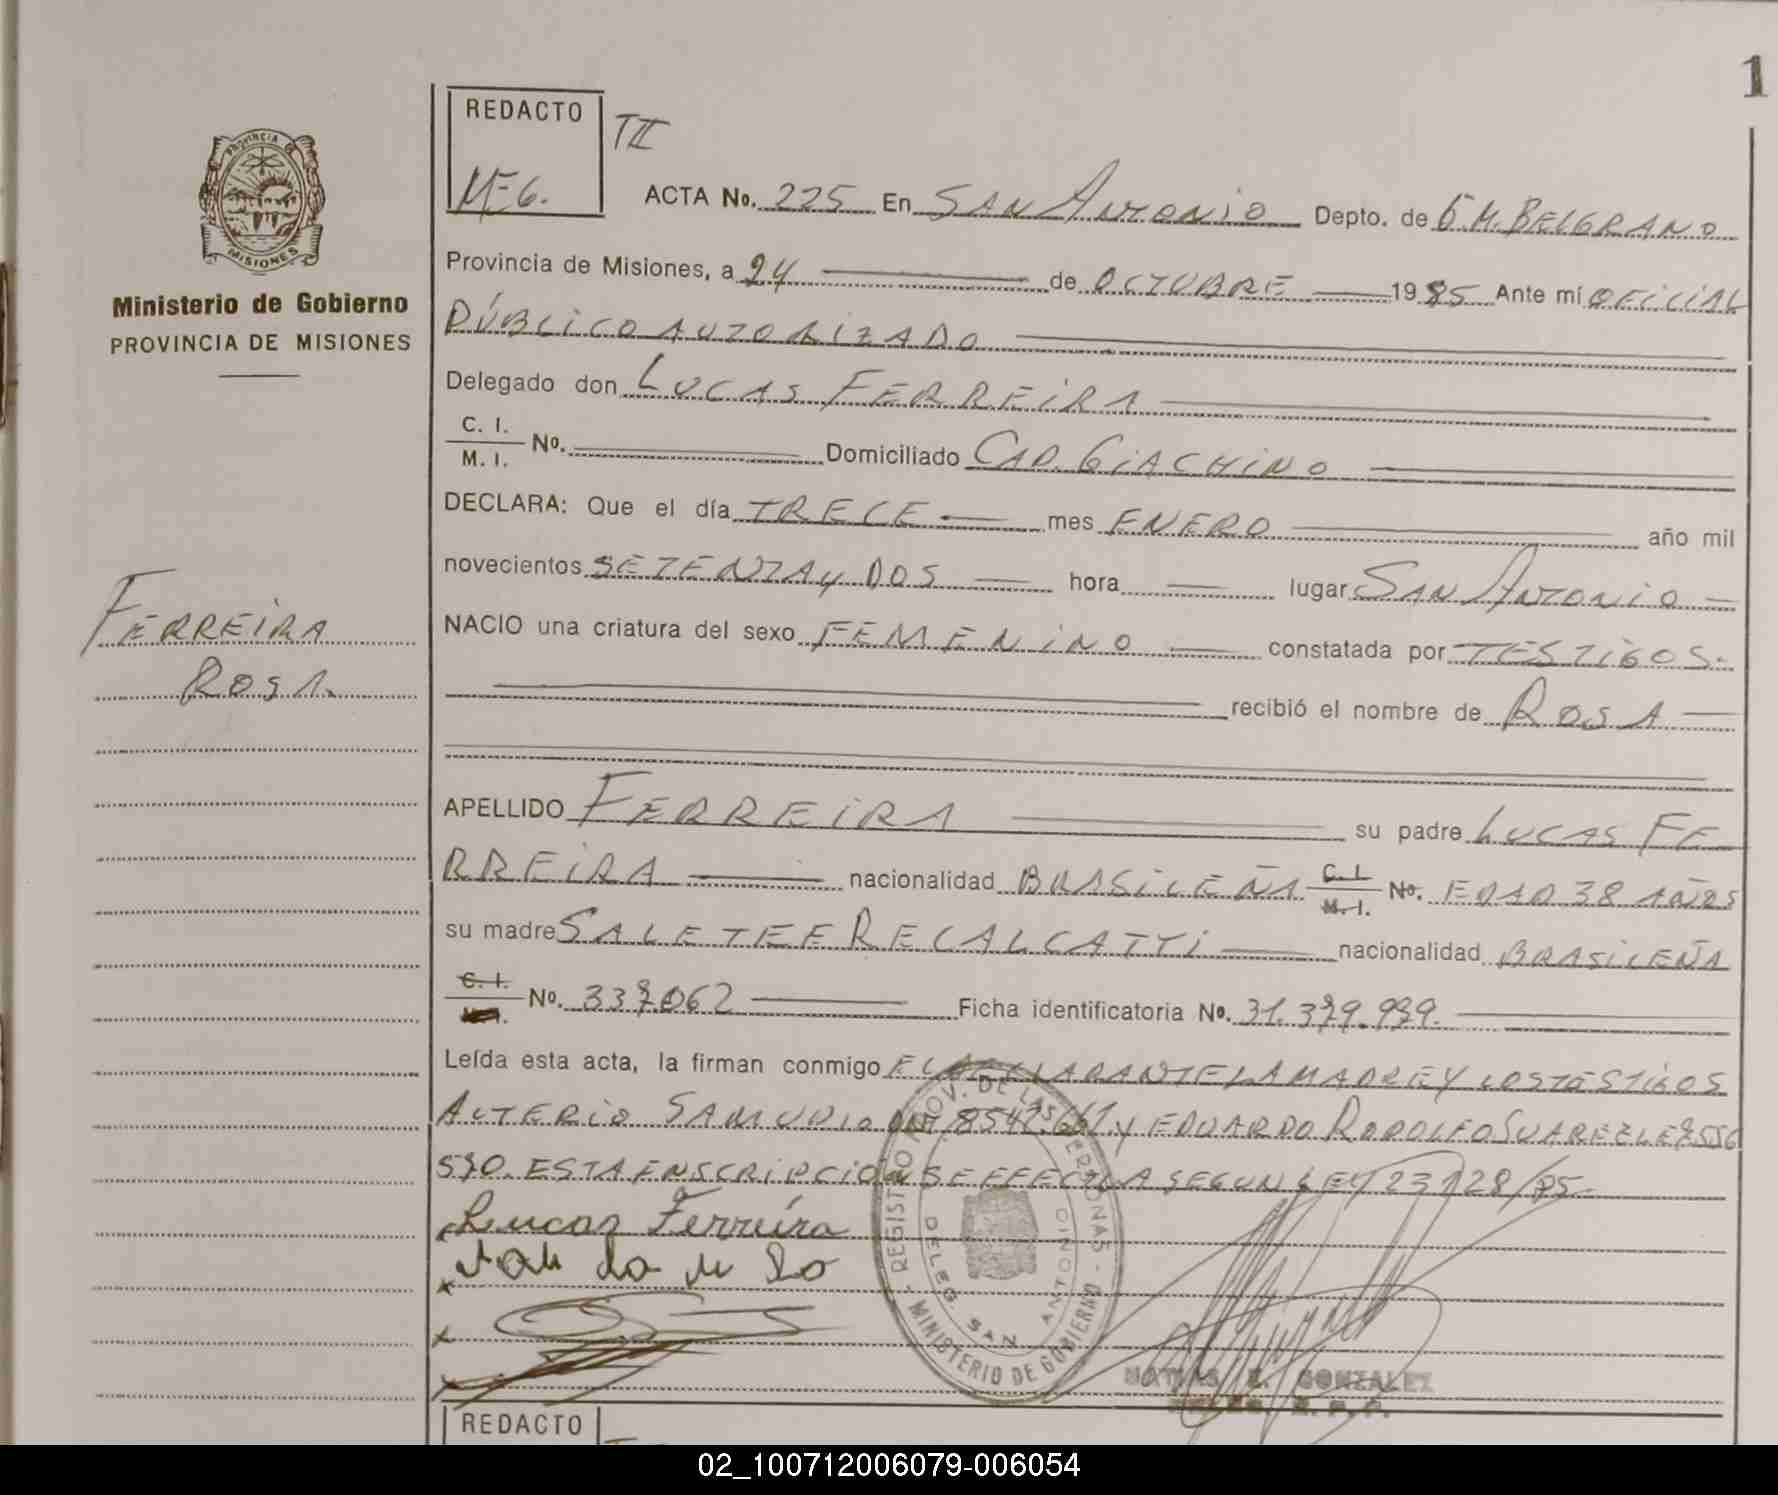 1
REDACTO
TII
MEG.
PROVINCIA DE
MISIONES
Ministerio de Gobierno
PROVINCIA DE MISIONES
ACTA No. 225 En SAN ANTONIO Depto. de G.M. BELGRANO
Provincia de Misiones, a 24 de OCTUBRE 1985 Ante mí OFICIAL
PÚBLICO AUTORIZADO
Delegado don LUCAS FERREIRA
C. I.
M. I. No. Domiciliado CAP. GIACHINO
DECLARA: Que el día TRECE mes ENERO año mil
novecientos SETENTA y DOS hora lugar SAN ANTONIO
FERREIRA
ROSA.
NACIO una criatura del sexo FEMENINO constatada por TESTIGOS.
recibió el nombre de ROSA
APELLIDO FERREIRA su padre LUCAS FE
RREIRA nacionalidad BRASILEÑA C. I. M. I. No. EDAD 38 AÑOS
su madre SALETEE RECALCATTI nacionalidad BRASILEÑA
C. I. No. 337.062 Ficha identificatoria No. 31.379.939.
Leída esta acta, la firman conmigo EL DECLARANTE LA MADRE Y LOS TESTIGOS
ALTERIO SAMUDIO DNI 8542.661. y EDUARDO RODOLFO SUAREZ LE 7.556
570. ESTA ENSCRIPCION SE EFFECTUA SEGUN LEY 23128/85.
Lucas Ferreira
REGISTRO PROV. DE LAS PERSONAS - MINISTERIO DE GOBIERNO -
DELEG. SAN ANTONIO
MATIAS E. GONZALEZ
REDACTO
02_100712006079-006054